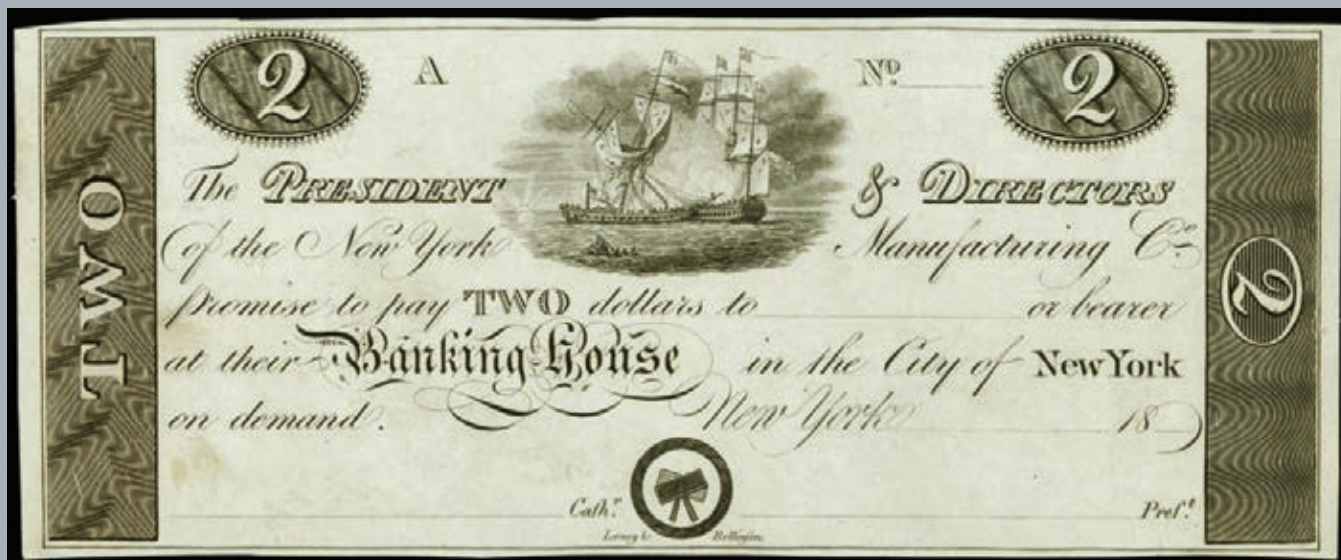 2 A Nº 2
TWO
The PRESIDENT & DIRECTORS
of the New York Manufacturing Cº
promise to pay TWO dollars to or bearer
at their Banking House in the City of New York
on demand. New York 18
2
Cashr. Prest.
Leney & Rollinson